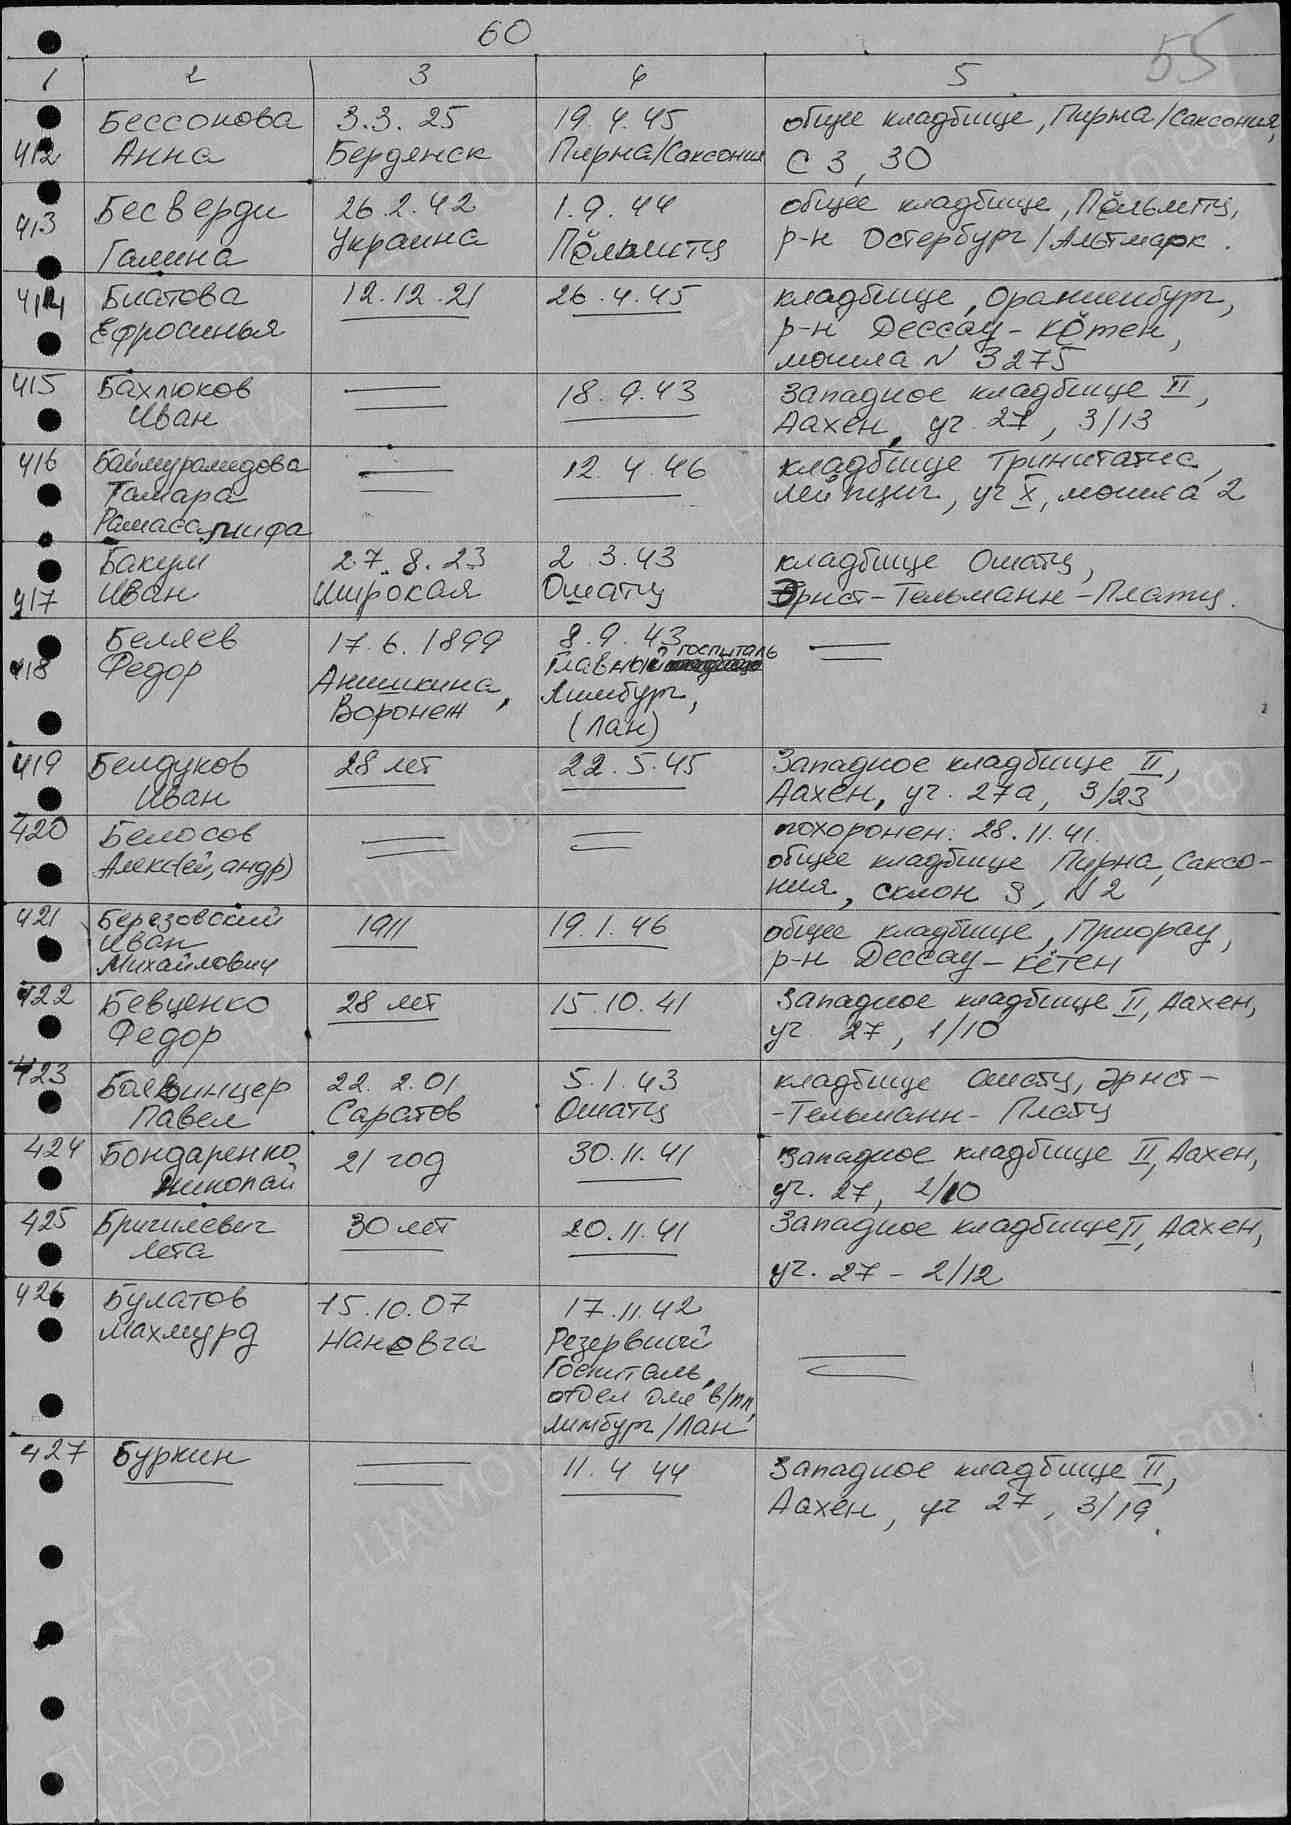 60
55
1 2 3 4 5
412
Бессонова
Анна
3.3.25
Бердянск
19.4.45
Пирна/Саксония
общее кладбище, Пирна/Саксония,
С 3, 30
413
Бесверди
Галина
26.2.42
Украина
1.9.44
Пёльмитц
общее кладбище, Пёльмитц,
р-н Остербург/Альтмарк.
414
Биатова
Ефросинья
12.12.21
26.4.45
кладбище, Ораниенбург,
р-н Дессау-Кётен,
могила N 3275
415
Бахлюков
Иван
18.9.43
Западное кладбище II,
Аахен, уч. 27, 3/13
416
Баймурамидова
Тамара
12.4.46
кладбище Тринитатис,
Лейпциг, уч X, могила 2
417
Бакум
Иван
27.8.23
Широкая
2.3.43
Ошатц
кладбище Ошатц,
Эрнст-Тельманн-Платц.
418
Беляев
Федор
17.6.1899
Анишкина,
Воронеж
8.9.43
Главный госпиталь
Лимбург,
(Лан)
419
Белдуков
Иван
28 лет
22.5.45
Западное кладбище II,
Аахен, уч. 27а, 3/23
420
Белосов
Алекс(ей, андр)
похоронен: 28.11.41.
общее кладбище Пирна, Саксо-
ния, склон 3, N 2
421
Березовский
Иван
Михайлович
1911
19.1.46
общее кладбище, Приорау,
р-н Дессау-Кётен
422
Бевценко
Федор
28 лет
15.10.41
Западное кладбище II, Аахен,
уч 27, 1/10
423
Павел
22.2.01
Саратов
5.1.43
Ошатц
кладбище Ошатц, Эрнст-
-Тельманн-Платц
424
Бондаренко
Николай
21 год
30.11.41
Западное кладбище II, Аахен,
уч. 27, 2/10
425
Бричилевич
Лета
30 лет
20.11.41
Западное кладбище II, Аахен,
уч. 27 - 2/12
426
Булатов
Махмурд
15.10.07
Нановга
17.11.42
Резервный
Госпиталь,
отдел для в/пл,
Лимбург/Лан
427
Буркин
11.4.44
Западное кладбище II,
Аахен, уч 27, 3/19.
ПАМЯТЬ
НАРОДА
ЦАМО.РФ